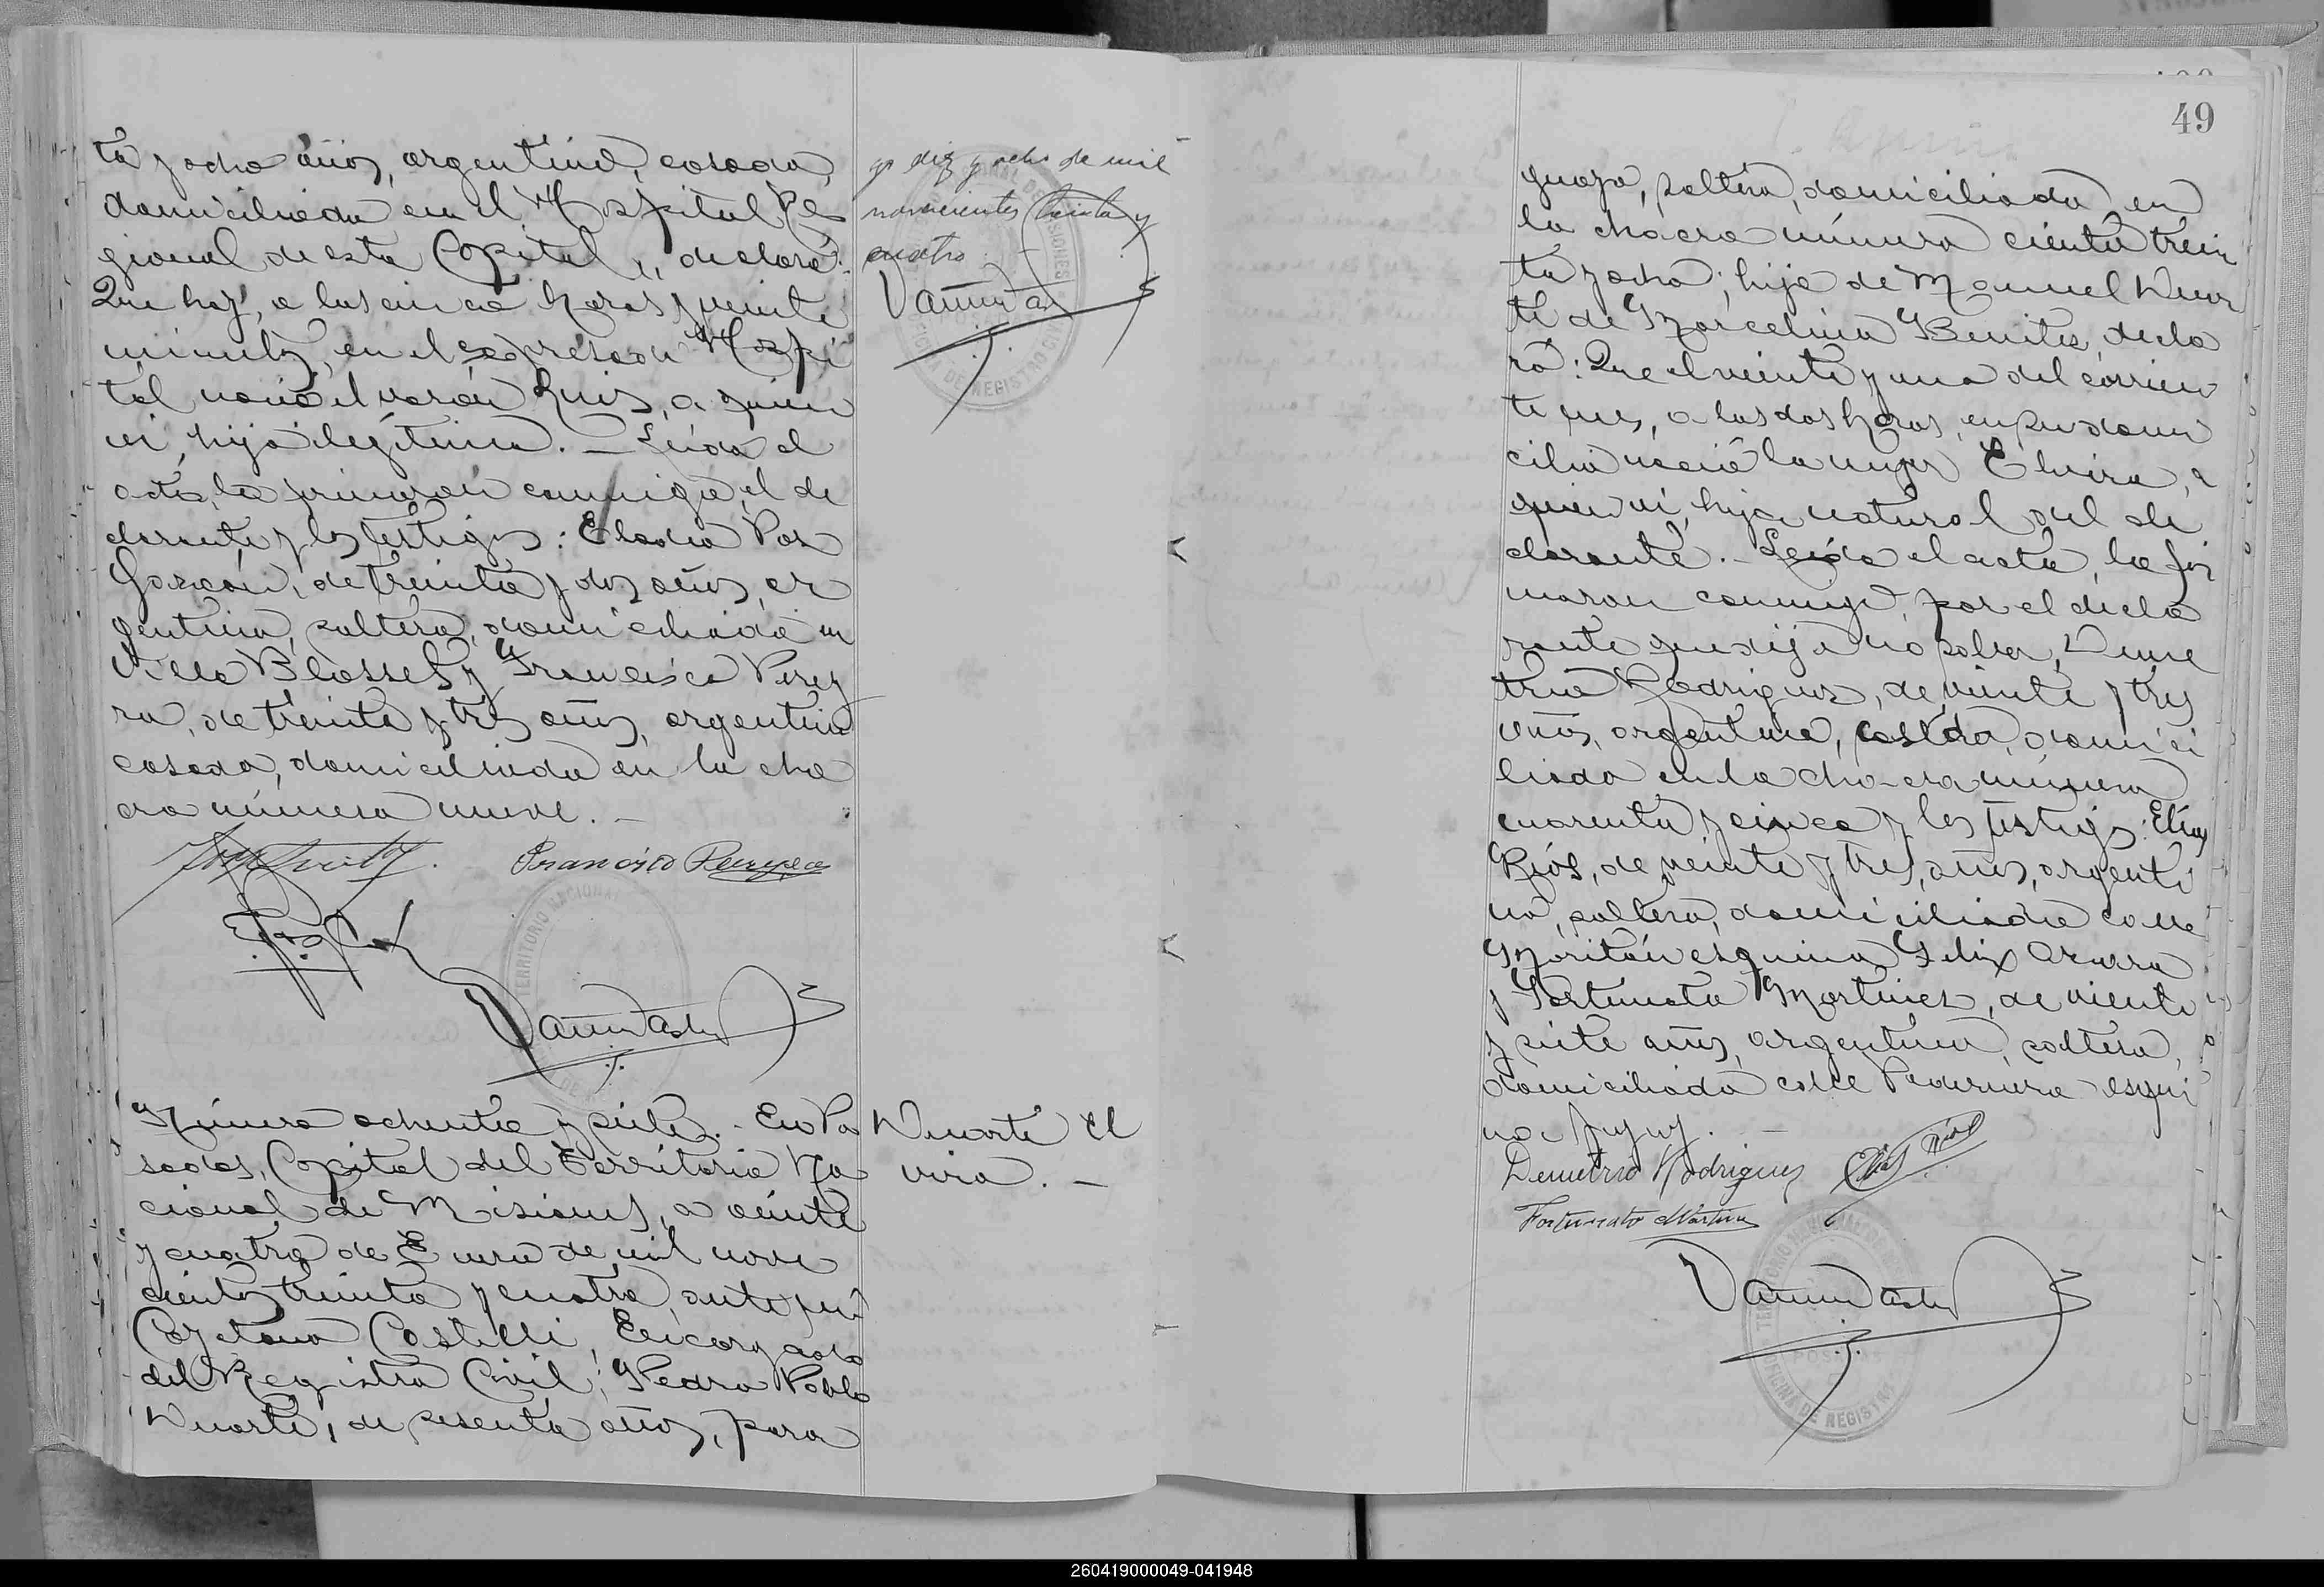 ta y ocho años, argentino, casado,
domiciliado en el Hospital Re
gional de esta Capital, declaró:
Que hoy, a las cinco horas y veinte
minutos, en el expresado Hospi
tal nació el varón Luis, a quien
vi, hijo ilegítimo. — Leida el
acta, la firmaron conmigo, el de
clarante y los testigos: Eladio Paz
Garzón, de treinta y dos años, ar
gentino, soltero, domiciliado en
Villa Blosset y Francisco Perey
ra, de treinta y tres años, argentino
casado, domiciliado en la cha
cra número nueve. —
Francisco Pereyra
TERRITORIO NACIONAL
Número ochenta y siete. - En Po
sadas, Capital del Territorio Na
cional de Misiones, a veinte
y cuatro de Enero de mil nove
cientos treinta y cuatro, ante mí
Cayetano Castelli, Encargado
del Registro Civil; Pedro Pablo
Duarte, de sesenta años, para
yo diez y ocho de mil
novecientos treinta y
cuatro. —
OFICINA DE REGISTRO CIVIL
Duarte El
vira. —
49
guayo, soltero, domiciliado en
la chacra número ciento trein
ta y ocho; hijo de Manuel Duar
te de Marcelina Benitez, decla
ró: Que el veinte y uno del corrien
te mes, a las dos horas, en su domi
cilio nació la mujer Elvira, a
quien vi, hija natural del de
clarante. - Leida el acta, la fir
maron conmigo por el decla
rante que dijo no saber, Deme
trio Rodriguez, de veinte y tres
años, argentino, casado, domici
liado en la chacra número
cuarenta y cinco y los testigos: Elías
Ríos, de veinte y tres, años, argenti
no, soltero, domiciliado calle
Moritán esquina Felix Azarra
y Fortunato Martinez, de viente
y siete años, argentino, soltero,
domiciliado calle Pedernera esqui
na Jujuy. —
Demetrio Rodriguez Elías Ríos
Fortunato Martinez
POSADAS
OFICINA DE REGISTRO
260419000049-041948